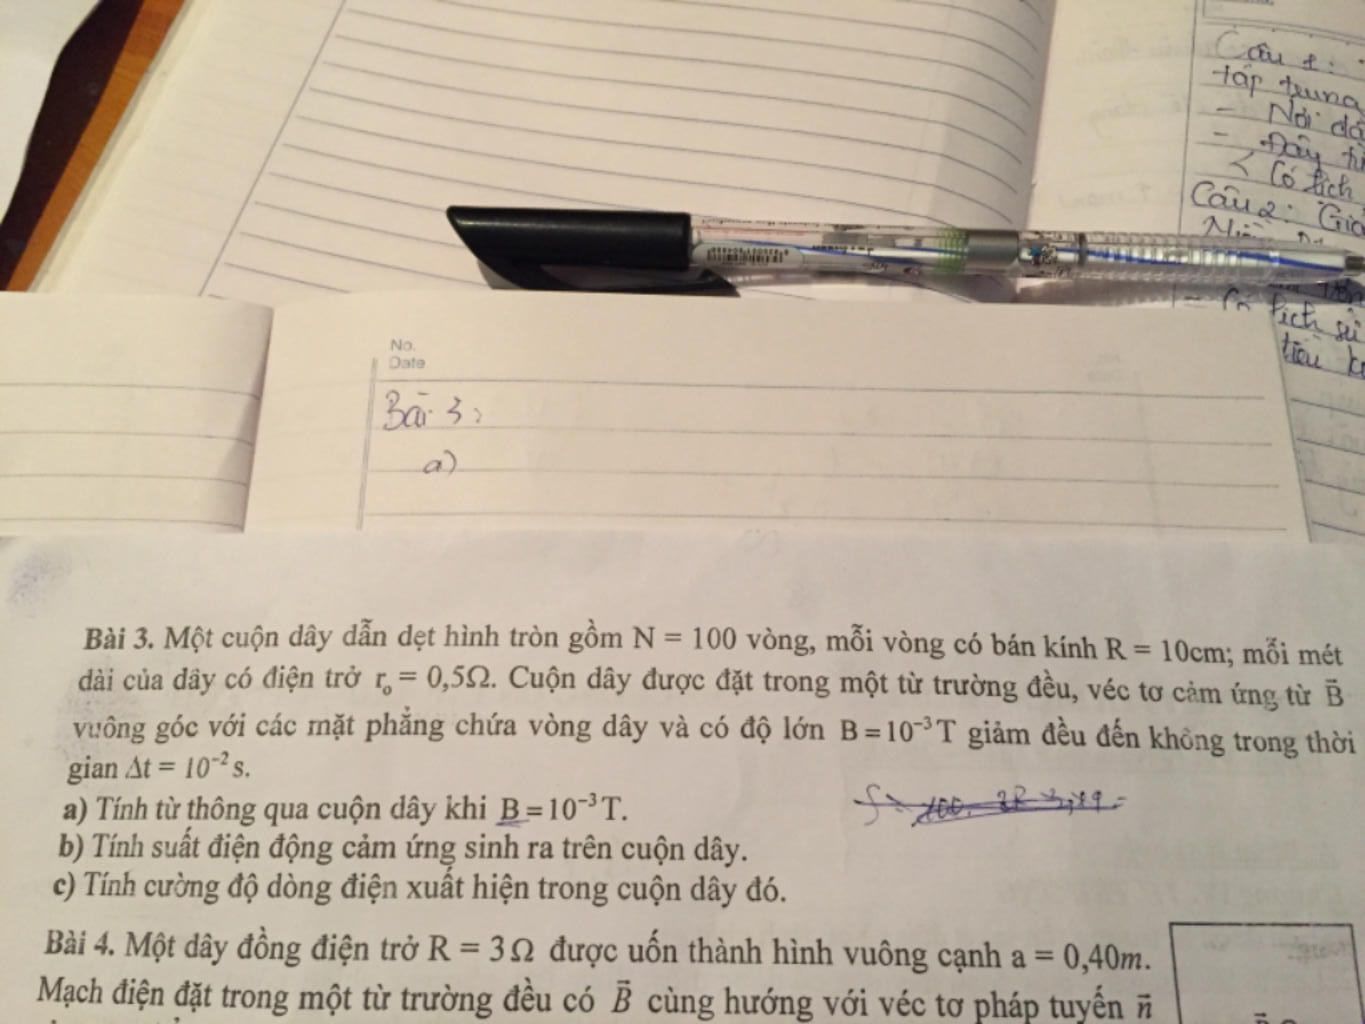 Câu 1:
tập trung
- Nơi
- Đây
< Có lịch
Câu 2:
- Có lịch sử
tiêu
No.
Date
Bài 3:
a)
Bài 3. Một cuộn dây dẫn dẹt hình tròn gồm N = 100 vòng, mỗi vòng có bán kính R = 10cm; mỗi mét
dài của dây có điện trở r₀ = 0,5Ω. Cuộn dây được đặt trong một từ trường đều, véc tơ cảm ứng từ B⃗
vuông góc với các mặt phẳng chứa vòng dây và có độ lớn B = 10⁻³T giảm đều đến không trong thời
gian Δt = 10⁻² s.
a) Tính từ thông qua cuộn dây khi B = 10⁻³T.
b) Tính suất điện động cảm ứng sinh ra trên cuộn dây.
c) Tính cường độ dòng điện xuất hiện trong cuộn dây đó.
Bài 4. Một dây đồng điện trở R = 3Ω được uốn thành hình vuông cạnh a = 0,40m.
Mạch điện đặt trong một từ trường đều có B⃗ cùng hướng với véc tơ pháp tuyến n⃗